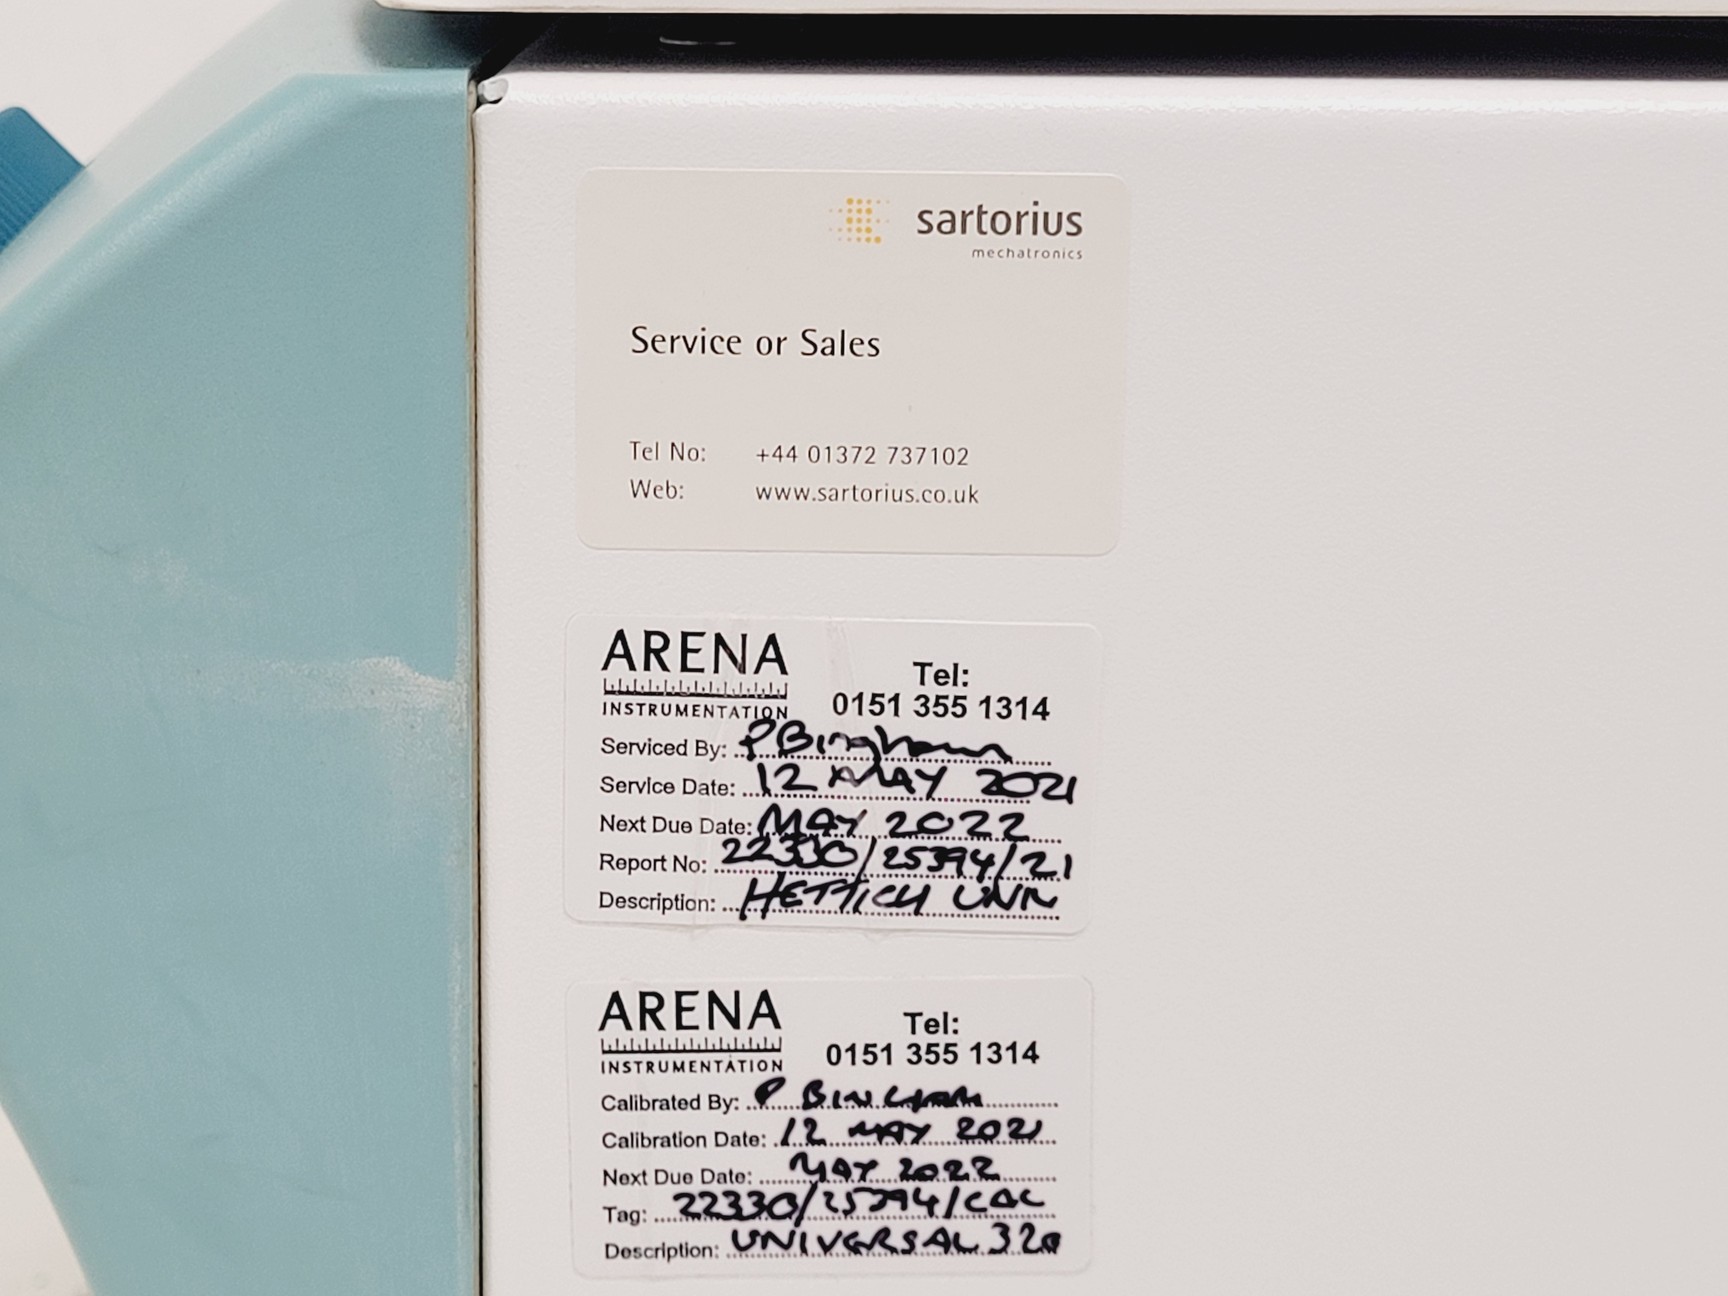 sartorius
mechatronics
Service or Sales
Tel No: +44 01372 737102
Web: www.sartorius.co.uk
ARENA
INSTRUMENTATION
Tel:
0151 355 1314
Serviced By: P Bingham
Service Date: 12 MAY 2021
Next Due Date: MAY 2022
Report No: 22330/25394/21
Description: HETTICH UNIV
ARENA
INSTRUMENTATION
Tel:
0151 355 1314
Calibrated By: P BINGHAM
Calibration Date: 12 MAY 2021
Next Due Date: MAY 2022
Tag: 22330/25394/CAL
Description: UNIVERSAL 320